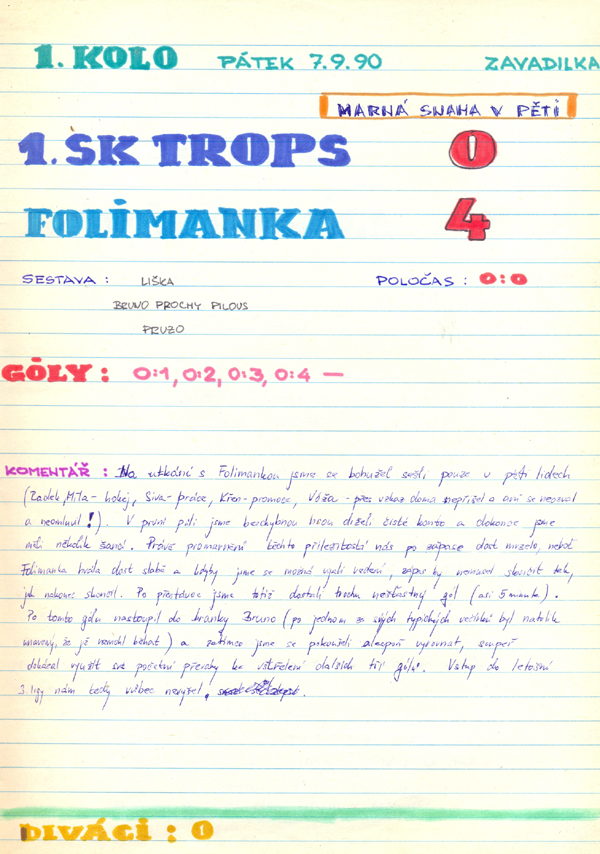 1. KOLO PÁTEK 7.9.90 ZAVADILKA
MARNÁ SNAHA V PĚTI
1. SK TROPS 0
FOLIMANKA 4
SESTAVA : LIŠKA POLOČAS : 0:0
BRUNO PROCHY PILOUS
PRUZO
GÓLY : 0:1, 0:2, 0:3, 0:4 —
KOMENTÁŘ : Na utkání s Folimankou jsme se bohužel sešli pouze v pěti lidech
(Zadek, Míla - hokej, Siva - práce, Křen - promoce, Vóža - přes vzkaz doma nepřišel a ani se neozval
a neomluvil !). V první půli jsme bezchybnou hrou drželi čisté konto a dokonce jsme
měli několik šancí. Právě promarnění těchto příležitostí nás po zápase dost mrzelo, neboť
Folimanka hrála dost slabě a kdyby jsme se možná ujali vedení, zápas by nemusel skončit tak,
jak nakonec skončil. Po přestávce jsme totiž dostali trochu nešťastný gól (asi 5 minuta).
Po tomto gólu nastoupil do branky Bruno (po jednom ze svých typických večírků byl natolik
unavený, že již nemohl běhat) a zatímco jsme se pokoušeli alespoň vyrovnat, soupeř
dokázal využít své početní převahy ke vstřelení dalších tří gólů. Vstup do letošní
3. ligy nám tedy vůbec nevyšel,
DIVÁCI : 0